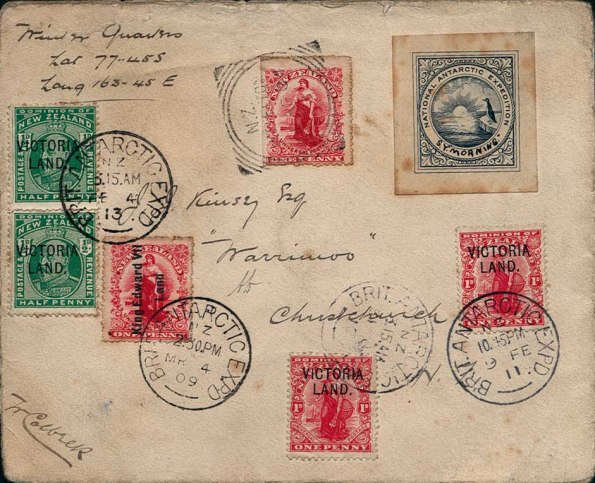 Winter Quarters
Lat 77-45 S
Long 163-45 E
DOMINION OF
NEW ZEALAND
POSTAGE &
REVENUE
VICTORIA
LAND.
HALF PENNY
BRIT. ANTARCTIC EXPD
N Z
3.15 AM
FE 4
13
DOMINION OF
NEW ZEALAND
POSTAGE &
REVENUE
VICTORIA
LAND.
HALF PENNY
N.Z.
NEW ZEALAND
ONE PENNY
NATIONAL ANTARCTIC EXPEDITION
S.Y. MORNING.
Kinsey Esq
"Warrimoo"
Christchurch
King Edward VII
Land
ONE PENNY
BRIT. ANTARCTIC EXPD
N Z
2.30 PM
MR 4
09
BRIT. ANTARCTIC
N Z
DOMINION OF
NEW ZEALAND
VICTORIA
LAND.
1D
1D
BRIT. ANTARCTIC EXPD
N Z
10.15 PM
9 FE
11
DOMINION OF
NEW ZEALAND
VICTORIA
LAND.
1D
1D
ONE PENNY
W Colbeck